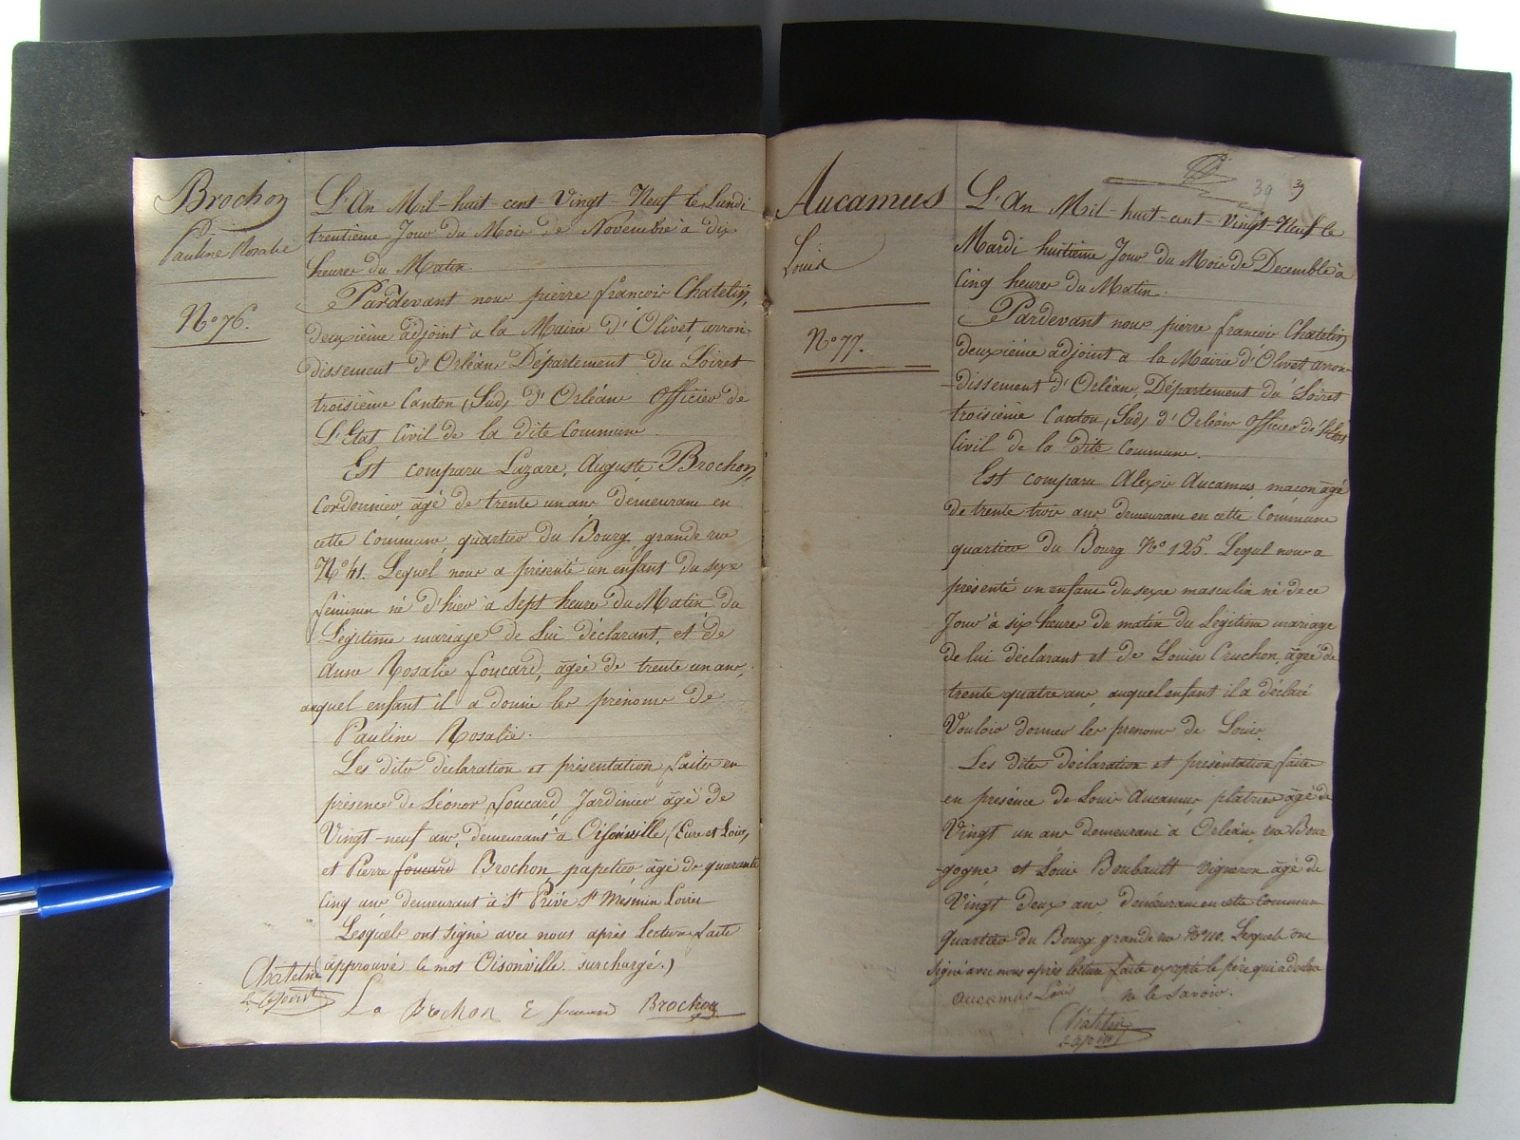 Brochon
Pauline Rosalie
N° 76.
L'An Mil-huit-cent Vingt-Neuf le Lundi
trentième Jour du Mois de Novembre à dix
heures du Matin.
Pardevant nous pierre françois Chatelin,
deuxième adjoint à la Mairie d'Olivet, arron-
dissement d'Orléans Département du Loiret
troisième Canton (Sud) d'Orléans Officier de
L'Etat Civil de la dite Commune
Est comparu Lazare, Auguste Brochon,
Cordonnier âgé de trente un ans demeurant en
cette Commune, quartier du Bourg grande rue
N° 41. Lequel nous a présenté un enfant du sexe
féminin né d'hier à Sept heures du Matin du
Légitime mariage de Lui déclarant, et de
Anne Rosalie foucard, âgée de trente un ans,
auquel enfant il a donné les prénoms de
Pauline Rosalie.
Les dites déclaration et présentation faites en
présence de Léonor foucard Jardinier âgé de
Vingt-neuf ans, demeurant à Oisonville, (Eure et Loir,
et Pierre foucard Brochon, papetier âgé de quarante
Cinq ans demeurant à St Privé St Mesmin Loiret
Lesquels ont signé avec nous après lecture faite
(approuvé le mot Oisonville surchargé.)
Chatelin
adjoint
La Brochon E foucard Brochon
Aucamus
Louis
N° 77.
39
L'An Mil-huit-cent-Vingt-Neuf le
Mardi huitième Jour du Mois de Decembre à
Cinq heures du Matin.
Pardevant nous pierre françois Chatelin
deuxième adjoint à la Mairie d'Olivet arron-
-dissement d'Orléans, Département du Loiret
troisième Canton (Sud) d'Orléans Officier de l'Etat
Civil de la dite Commune.
Est comparu Alexis Aucamus, maçon âgé
de trente trois ans demeurant en cette Commune
quartier du Bourg N° 125. Lequel nous a
présenté un enfant du sexe masculin né de ce
Jour à six heures du matin du Légitime mariage
de lui déclarant et de Louise Cruchon, âgée de
trente quatre ans, auquel enfant il a déclaré
Vouloir donner les prenoms de Louis.
Les dites déclaration et présentation faite
en présence de Louis Aucamus, platrier âgé de
Vingt un ans demeurant à Orléans, rue Bour
-gogne et Louis Boubault Vigneron âgé de
Vingt deux ans, demeurant en cette Commune
quartier du Bourg grande rue N° 110. Lesquels ont
signé avec nous après lecture faite excepté le père qui a déclaré
ne le savoir.
Aucamus Louis
Chatelin
adjoint